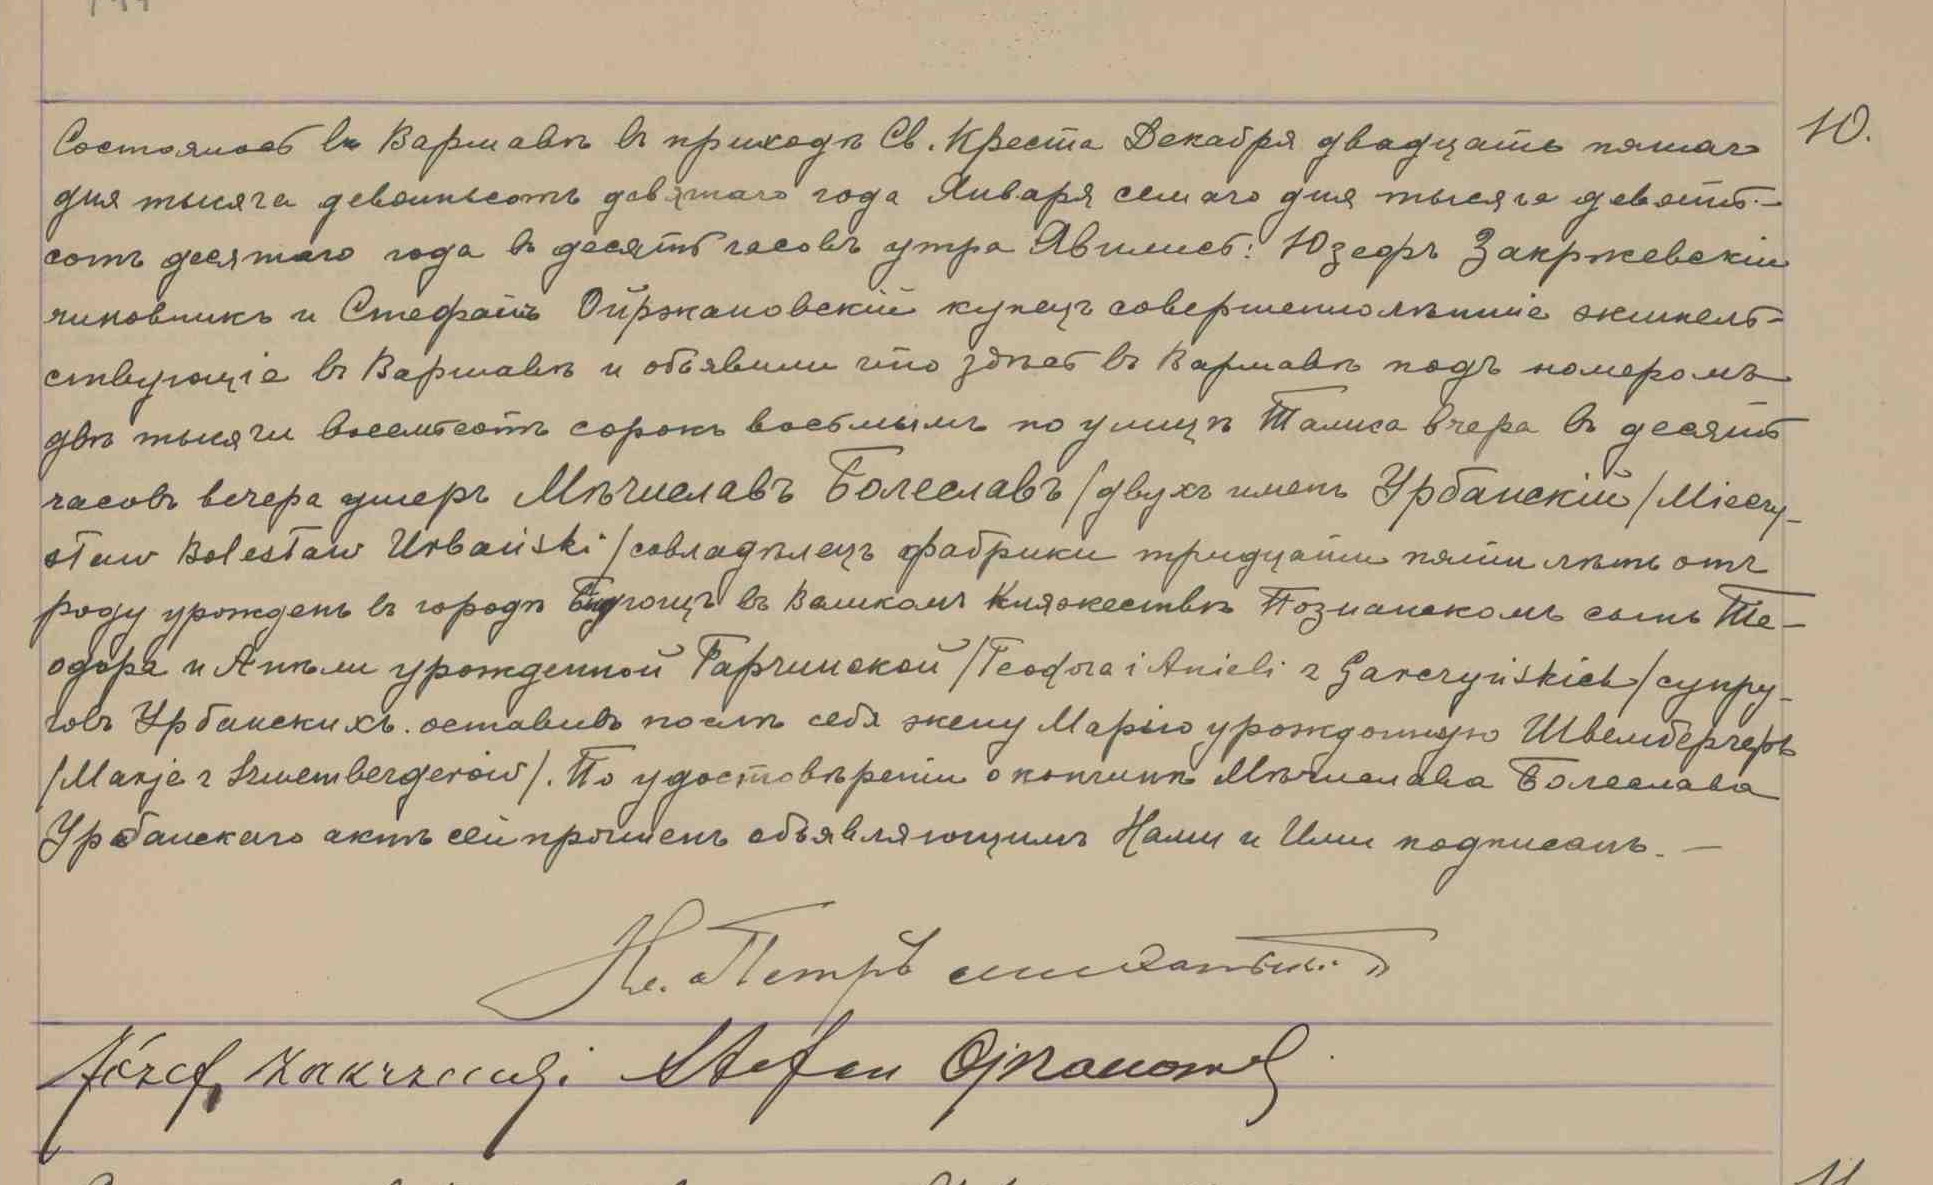 10.
Состоялось въ Варшавѣ въ приходѣ Св. Креста Декабря двадцать пятаго
дня тысяча девятьсотъ девятаго года Января семаго дня тысяча девять-
сотъ десятаго года въ десять часовъ утра Явились: Юзефъ Закржевскій
чиновникъ и Стефанъ Ойржановскій купецъ совершеннолѣтніе жительст-
ствующіе въ Варшавѣ и объявили что здѣсь въ Варшавѣ подъ номеромъ
двѣ тысячи восемьсотъ сорокъ восьмымъ по улицѣ Тамка вчера въ десять
часовъ вечера умеръ Мѣчиславъ Болеславъ /двухъ именъ Урбанскій /Mieczy-
sław Bolesław Urbański /совладѣлецъ фабрики тридцати пяти лѣтъ отъ
роду урожденъ въ городѣ въ Великомъ Княжествѣ Познанскомъ сынъ Те-
одора и Анѣли урожденной Гарчинской /Teodora i Anieli z Garczyńskich /супру-
говъ Урбанскихъ. оставивъ послѣ себя жену Марію урожденную Швембергеръ
/Marję z Szwembergerów /. По удостовѣреніи о кончинѣ Мѣчислава Болеслава
Урбанскаго актъ сей прочтенъ объявляющимъ Нами и Ими подписанъ. —
Кс. Петръ
Józef Zakrzewski Stefan Ojrzanowski
11